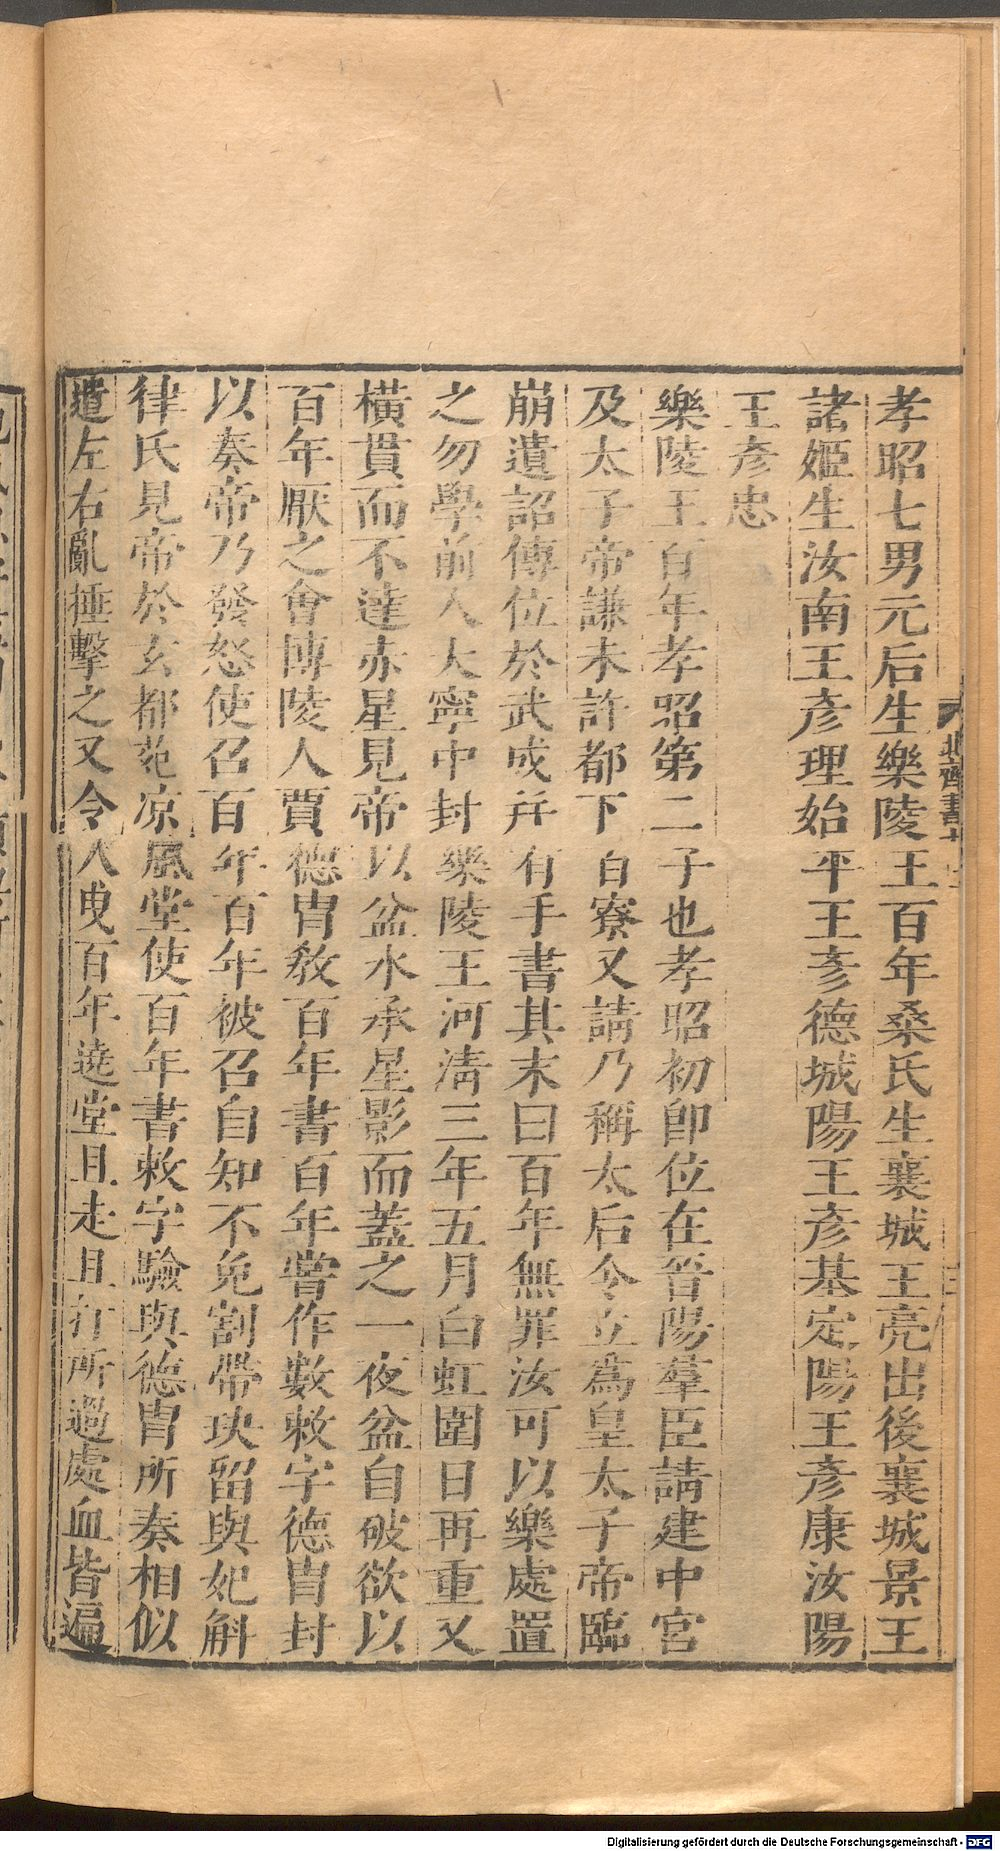 孝昭七男元后生樂陵王百年桑氏生襄城王亮出後襄城景王
諸姬生汝南王彥理始平王彥德城陽王彥基定陽王彥康汝陽
王彥忠
樂陵王百年孝昭第二子也孝昭初即位在晉陽羣臣請建中宮
及太子帝謙未許都下百寮又請乃稱太后令立爲皇太子帝臨
崩遺詔傳位於武成并有手書其末曰百年無罪汝可以樂處置
之勿學前人大寧中封樂陵王河淸三年五月白虹圍日再重又
橫貫而不達赤星見帝以盆水承星影而蓋之一夜盆自破欲以
百年厭之會博陵人賈德胄敎百年書百年嘗作數敕字德胄封
以奏帝乃發怒使召百年百年被召自知不免割帶玦留與妃斛
律氏見帝於玄都苑凉風堂使百年書敕字驗與德胄所奏相似
遣左右亂捶擊之又令人曳百年遶堂且走且打所過處血皆遍
北齊書十
Digitalisierung gefördert durch die Deutsche Forschungsgemeinschaft - DFG